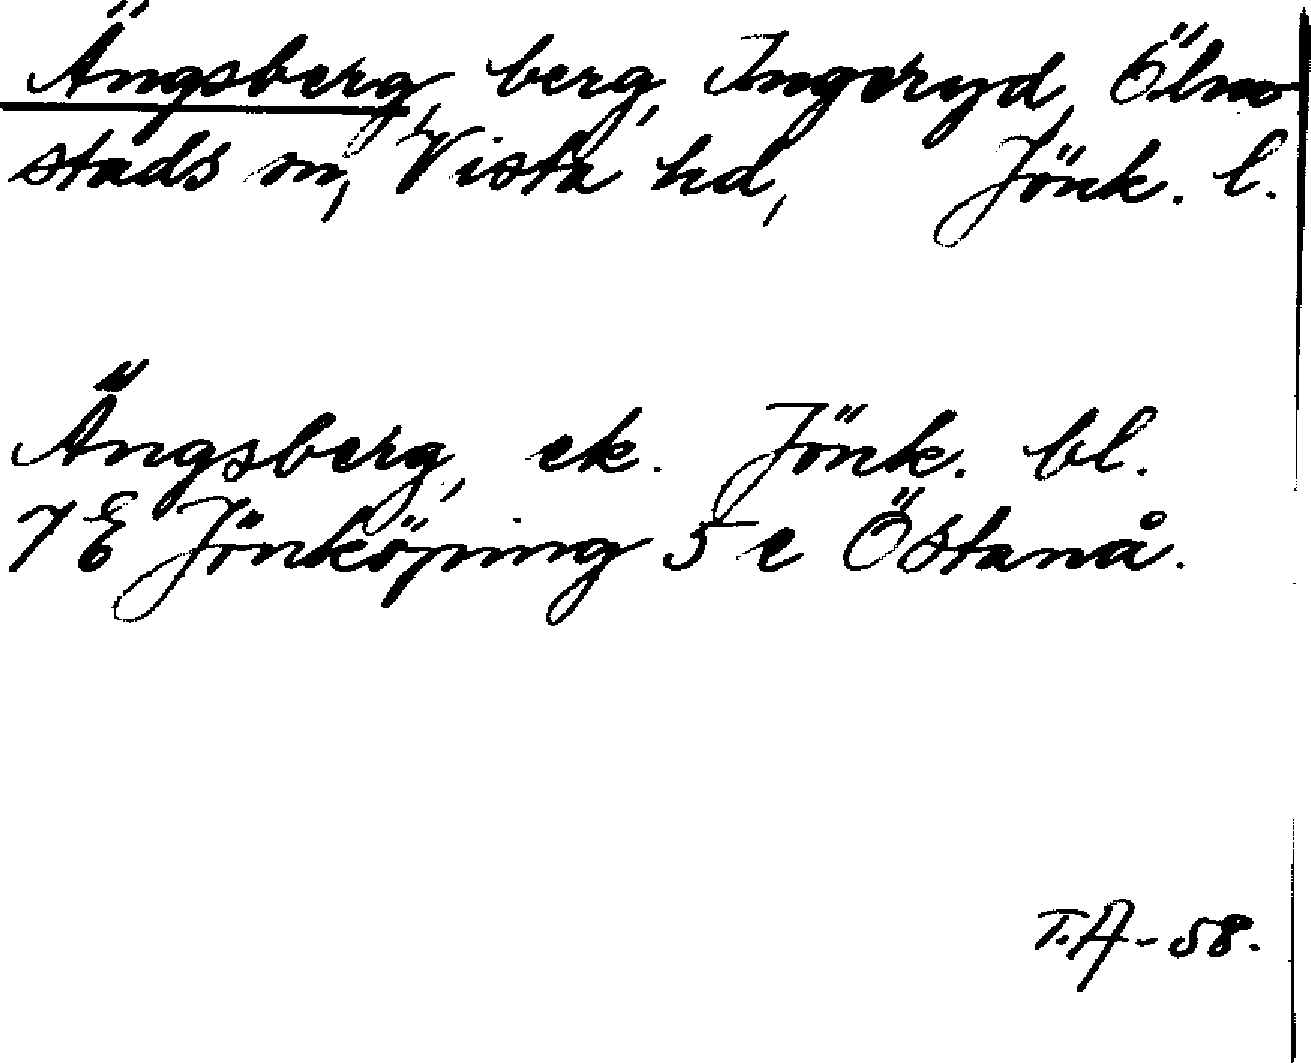 Ängsberg, berg, Ingeryd, Ölm-
stads sn, Vista hd, Jönk. l.
Ängsberg, ek. Jönk. bl.
7 E Jönköping 5 e Östanå.
T.A-58.